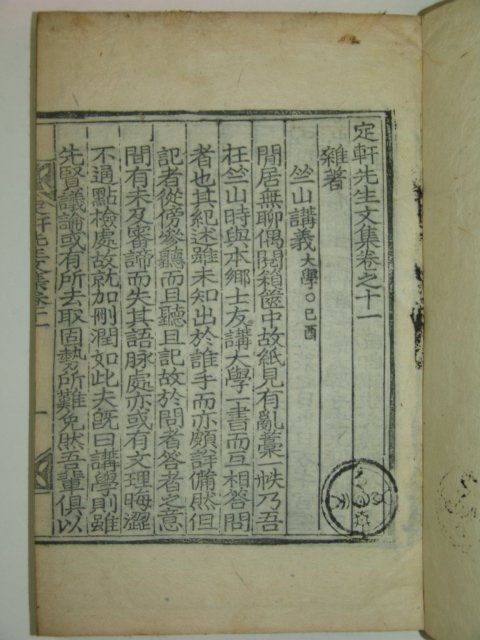 定軒先生文集卷之十一
雜著
竺山講義 大學○己酉
閒居無聊偶閱箱篋中故紙見有亂藁一帙乃吾
在竺山時與本鄕士友講大學一書而互相答問
者也其紀述雖未知出於誰手而亦頗詳備然但
記者從傍參聽而且聽且記故於問者答者之意
間有未及審諦而失其語脉處亦或有文理晦澀
不過點檢處故就加刪潤如此夫旣曰講學則雖
先賢議論或有所去取固勢所難免然吾輩俱以
定軒先生文集卷十一
一